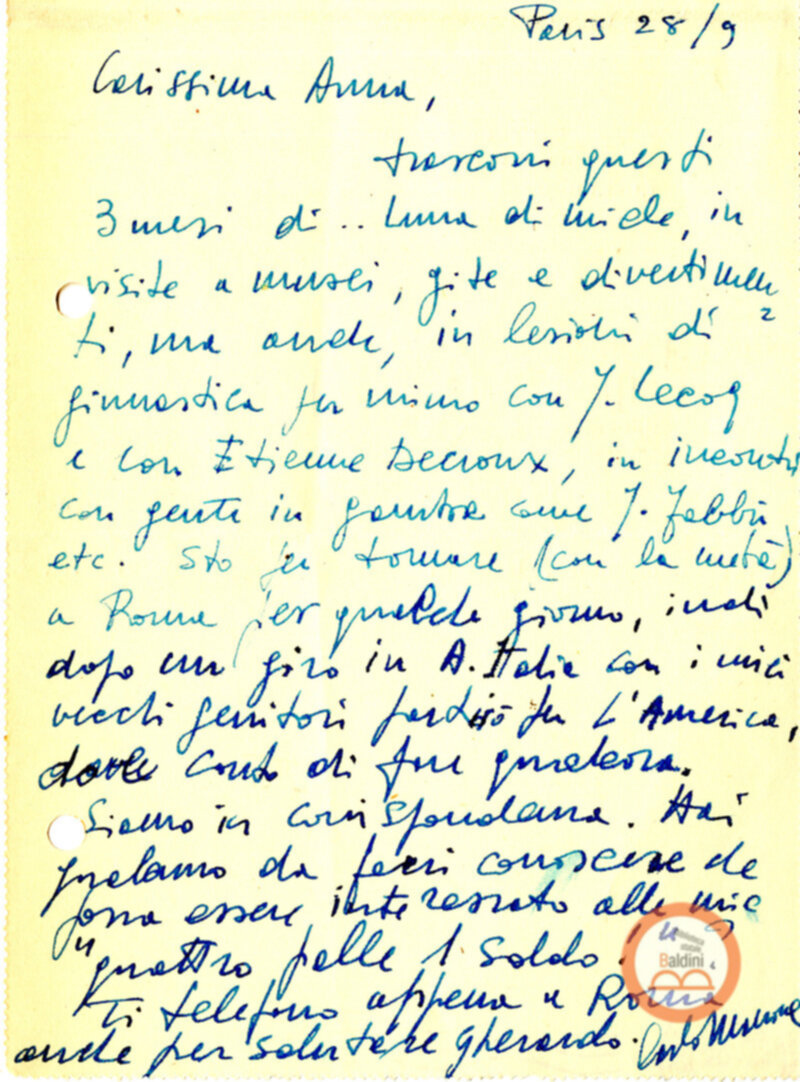 Paris 28/9
Carissima Anna,
trascorsi questi
3 mesi di .. Luna di miele, in
visite a musei, gite e divertimen
ti, ma anche, in lezioni di 2
ginnastica per mimo con J. Lecoq
e con Etienne Decroux, in incontri
con gente in gamba come J. Fabbri
etc. Sto per tornare (con la metà)
a Roma per qualche giorno, indi
dopo un giro in A. Italia con i miei
vecchi genitori partirò per L'America,
dove conto di fare qualcosa.
Siamo in corrispondenza. Hai
qualcuno da farci conoscere che
possa essere interessato alle mie
"quattro palle 1 Soldo"
Ti telefono appena a Roma
anche per salutare Gherardo.
Biblioteca
statale
Baldini